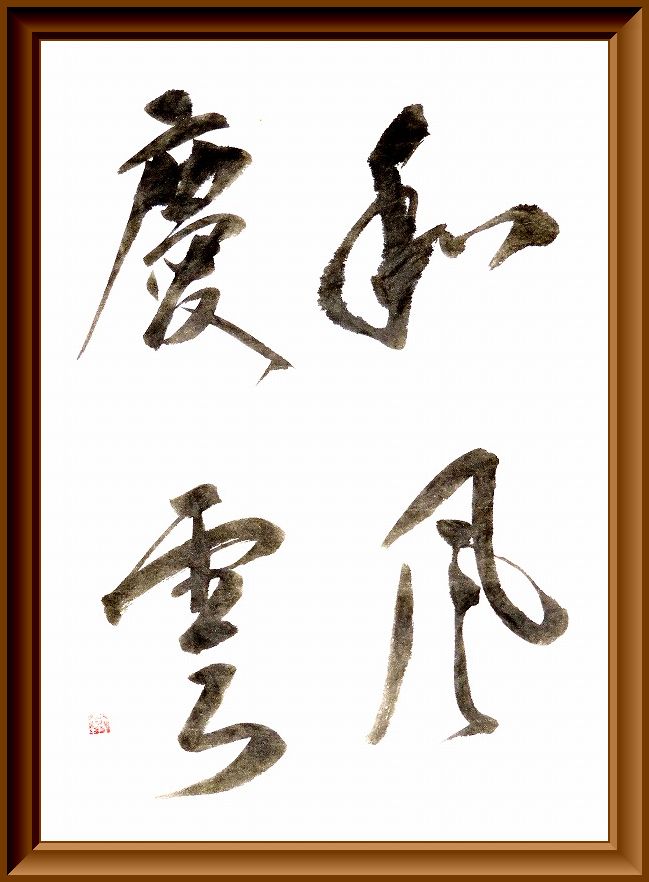 和風
慶雲